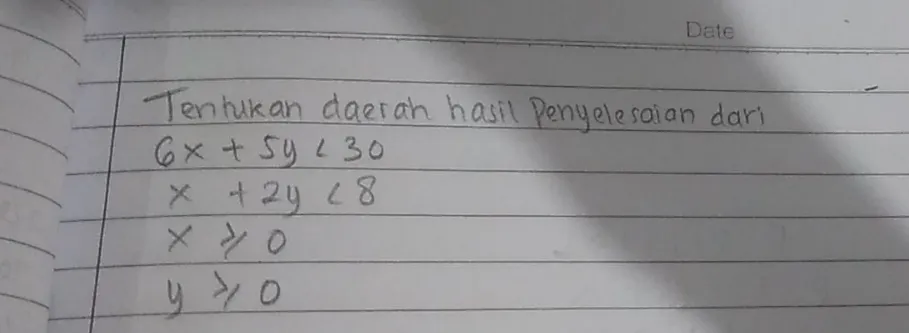 Date
Tentukan daerah hasil Penyelesaian dari
6x + 5y < 30
x + 2y < 8
x ⩾ 0
y ⩾ 0